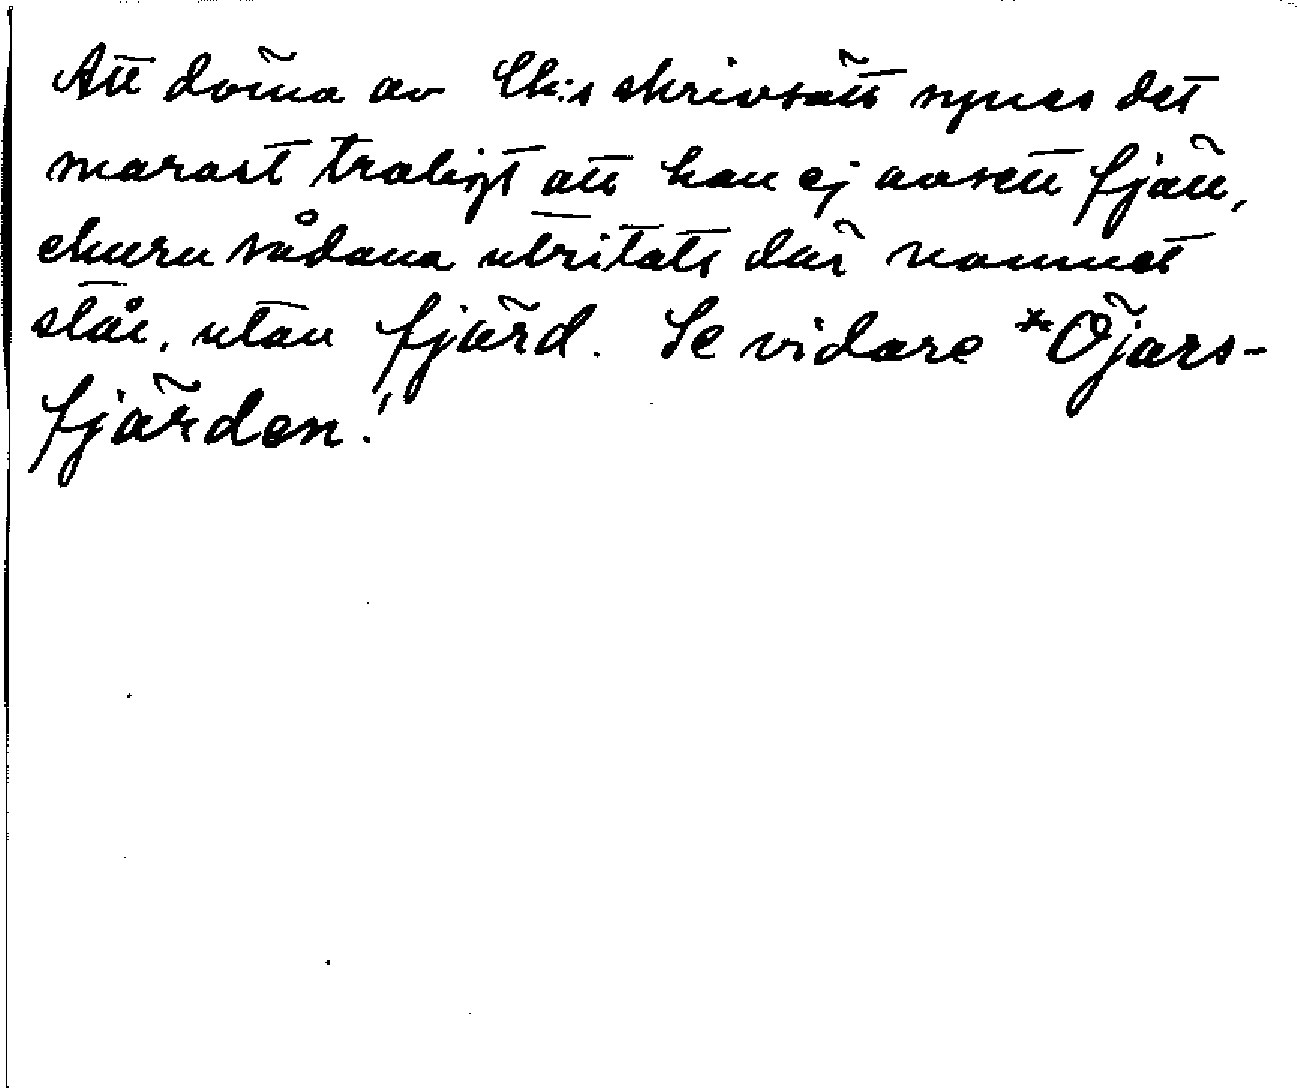 Att döma av Ek:s skrivsätt synes det
marast troligt att han ej avsett fjäll,
ehuru sådana utritats där namnet
står, utan fjärd. Se vidare *Öjars-
fjärden!